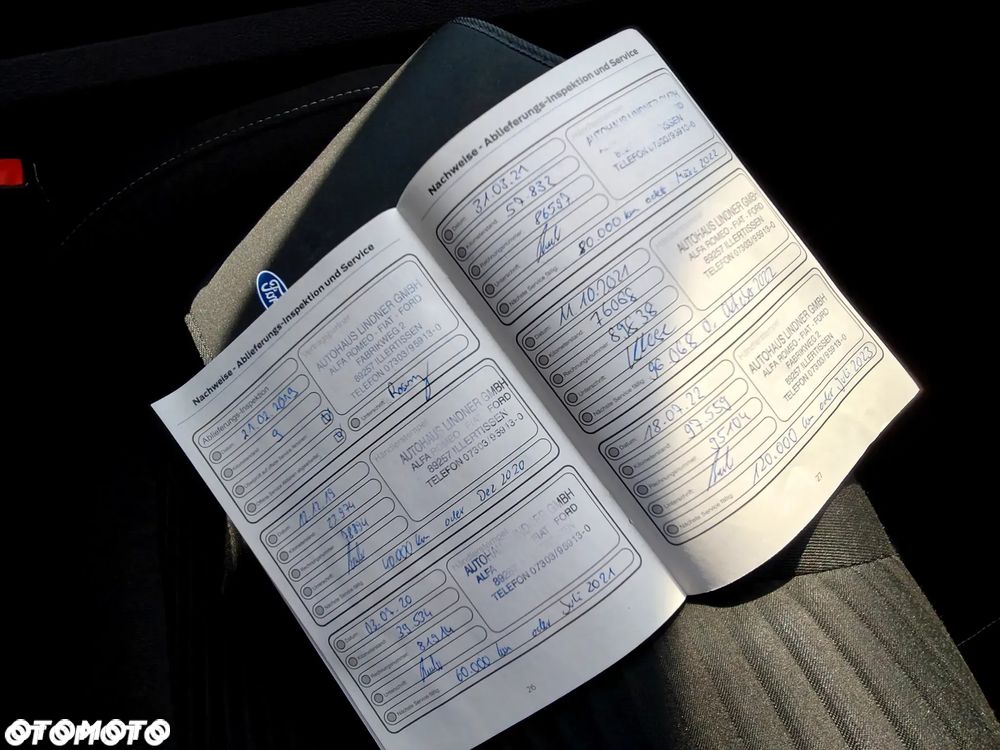 Nachweise - Ablieferungs-Inspektion und Service
Ablieferungs-Inspektion
Datum: 21.02.2019
9
Vertragspartner
AUTOHAUS LINDNER GMBH
ALFA ROMEO - FIAT - FORD
FABRIKWEG 2
89257 ILLERTISSEN
TELEFON 07303/95913-0
Unterschrift:
Datum: 12.12.19
Kilometerstand: 22974
Rechnungsnummer:
Unterschrift:
Nächste Service fällig: 40.000 km oder Dez 2020
Händlerstempel
AUTOHAUS LINDNER GMBH
ALFA ROMEO - FIAT - FORD
89257 ILLERTISSEN
TELEFON 07303/95913-0
Datum: 03.07.20
Kilometerstand: 39.534
Rechnungsnummer: 81914
Unterschrift:
Nächste Service fällig: 60.000 km oder Juli 2021
Händlerstempel
LINDNER GMBH
ALFA FIAT - FORD
TELEFON 07303/95913-0
26
Nachweise - Ablieferungs-Inspektion und Service
Datum: 31.03.21
Kilometerstand: 57.832
Rechnungsnummer: 86597
Unterschrift:
Nächste Service fällig: 80.000 km oder März 2022
AUTOHAUS LINDNER GMBH
TELEFON 07303/95913-0
Datum: 11.10.2021
Kilometerstand: 76068
Rechnungsnummer: 89638
Unterschrift:
Nächste Service fällig: 96.068 o. Oktober 2022
AUTOHAUS LINDNER GMBH
ALFA ROMEO - FIAT - FORD
89257 ILLERTISSEN
TELEFON 07303/95913-0
Datum: 18.07.22
Kilometerstand: 97.559
Rechnungsnummer: 95104
Unterschrift:
Nächste Service fällig: 120.000 km oder Juli 2023
Händlerstempel
AUTOHAUS LINDNER GMBH
ALFA ROMEO - FIAT - FORD
FABRIKWEG 2
89257 ILLERTISSEN
TELEFON 07303/95913-0
27
Ford
OTOMOTO